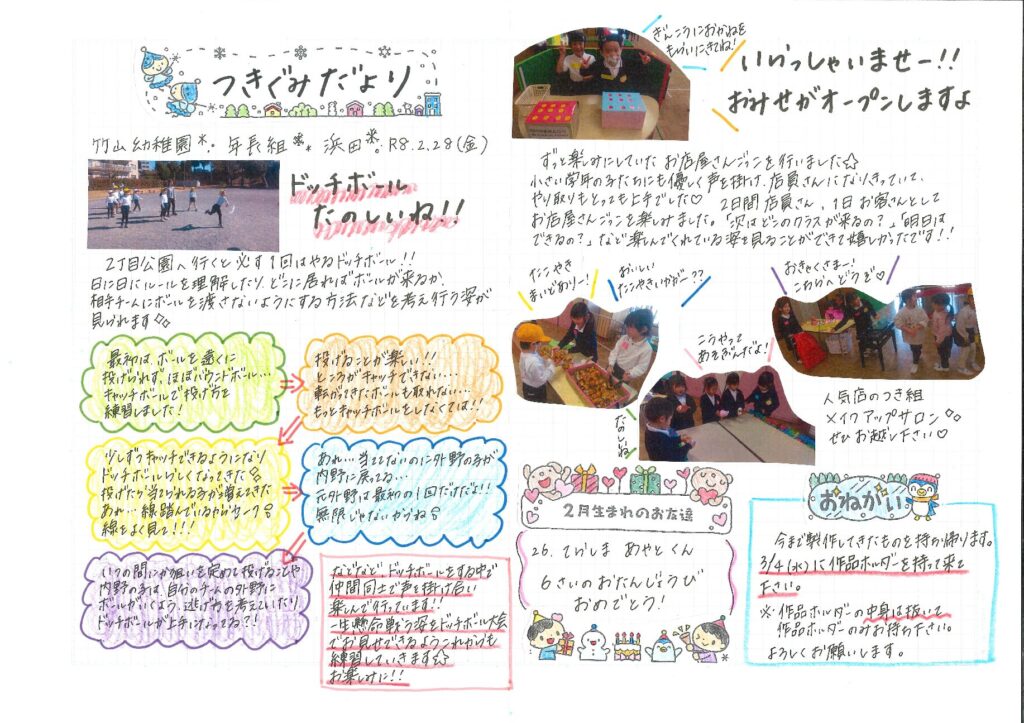 つきぐみだより
竹山幼稚園 年長組 浜田 R8.2.28(金)
ドッチボール
たのしいね!!
2丁目公園へ行くと必ず1回はやるドッチボール!!
日に日にルールを理解したり、どこに居ればボールが来るか、
相手チームにボールを渡さないようにする方法などを考え行う姿が
見られます
最初はボールを遠くに
投げられず、ほぼバウンドボール…
キャッチボールで投げ方を
練習しました!
投げることが楽しい!!
ところがキャッチできない…
転がってきたボールも取れない…
もっとキャッチボールをしなくては!!
少しずつキャッチできるようになり
ドッチボールらしくなってきた
投げたり当てられる子が増えてきた
あれ…線踏んでいるからワーク
線をよく見て!!!
あれ…当ててないのに外野の子が
内野に戻ってる…
元外野は最初の1回だけだよ!!
無限じゃないからね
いつの間にか狙いを定めて投げることや
内野の子は、自分のチームの外野に
ボールがいくよう、逃げ方を考えていたり
ドッチボールが上手になってる?!
などなど、ドッチボールをする中で
仲間同士で声を掛け合い
楽しんで行っています!!
一生懸命戦う姿をドッチボール大会
でお見せできるようこれからも
練習していきます☆
お楽しみに!!
ぎんこうにおかねを
もらいにきてね!
いらっしゃいませー!!
おみせがオープンしますよ
ずっと楽しみにしていたお店屋さんごっこを行いました☆
小さい学年の子たちにも優しく声を掛け、店員さんになりきっていて、
やり取りもとっても上手でした♡ 2日間店員さん、1日お客さんとして
お店屋さんごっこを楽しみました。「次はどこのクラスが来るの?」「明日は
できるの?」など楽しんでくれている姿を見ることができて嬉しかったです!!
たこやき
まいどありー!
おいしい
たこやきいかがー??
おきゃくさまー!
こちらへどうぞ♡
こうやって
あそぶんだよ!
たのしいね
人気店のつき組
メイクアップサロン
ぜひお越し下さい♡
2月生まれのお友達
26. てらしま あやと くん
6さいのおたんじょうび
おめでとう!
おねがい
今まで製作してきたものを持ち帰ります。
3/4(水)に作品ホルダーを持って来て
下さい。
※作品ホルダーの中身は抜いて
作品ホルダーのみお持ち下さい。
よろしくお願いします。